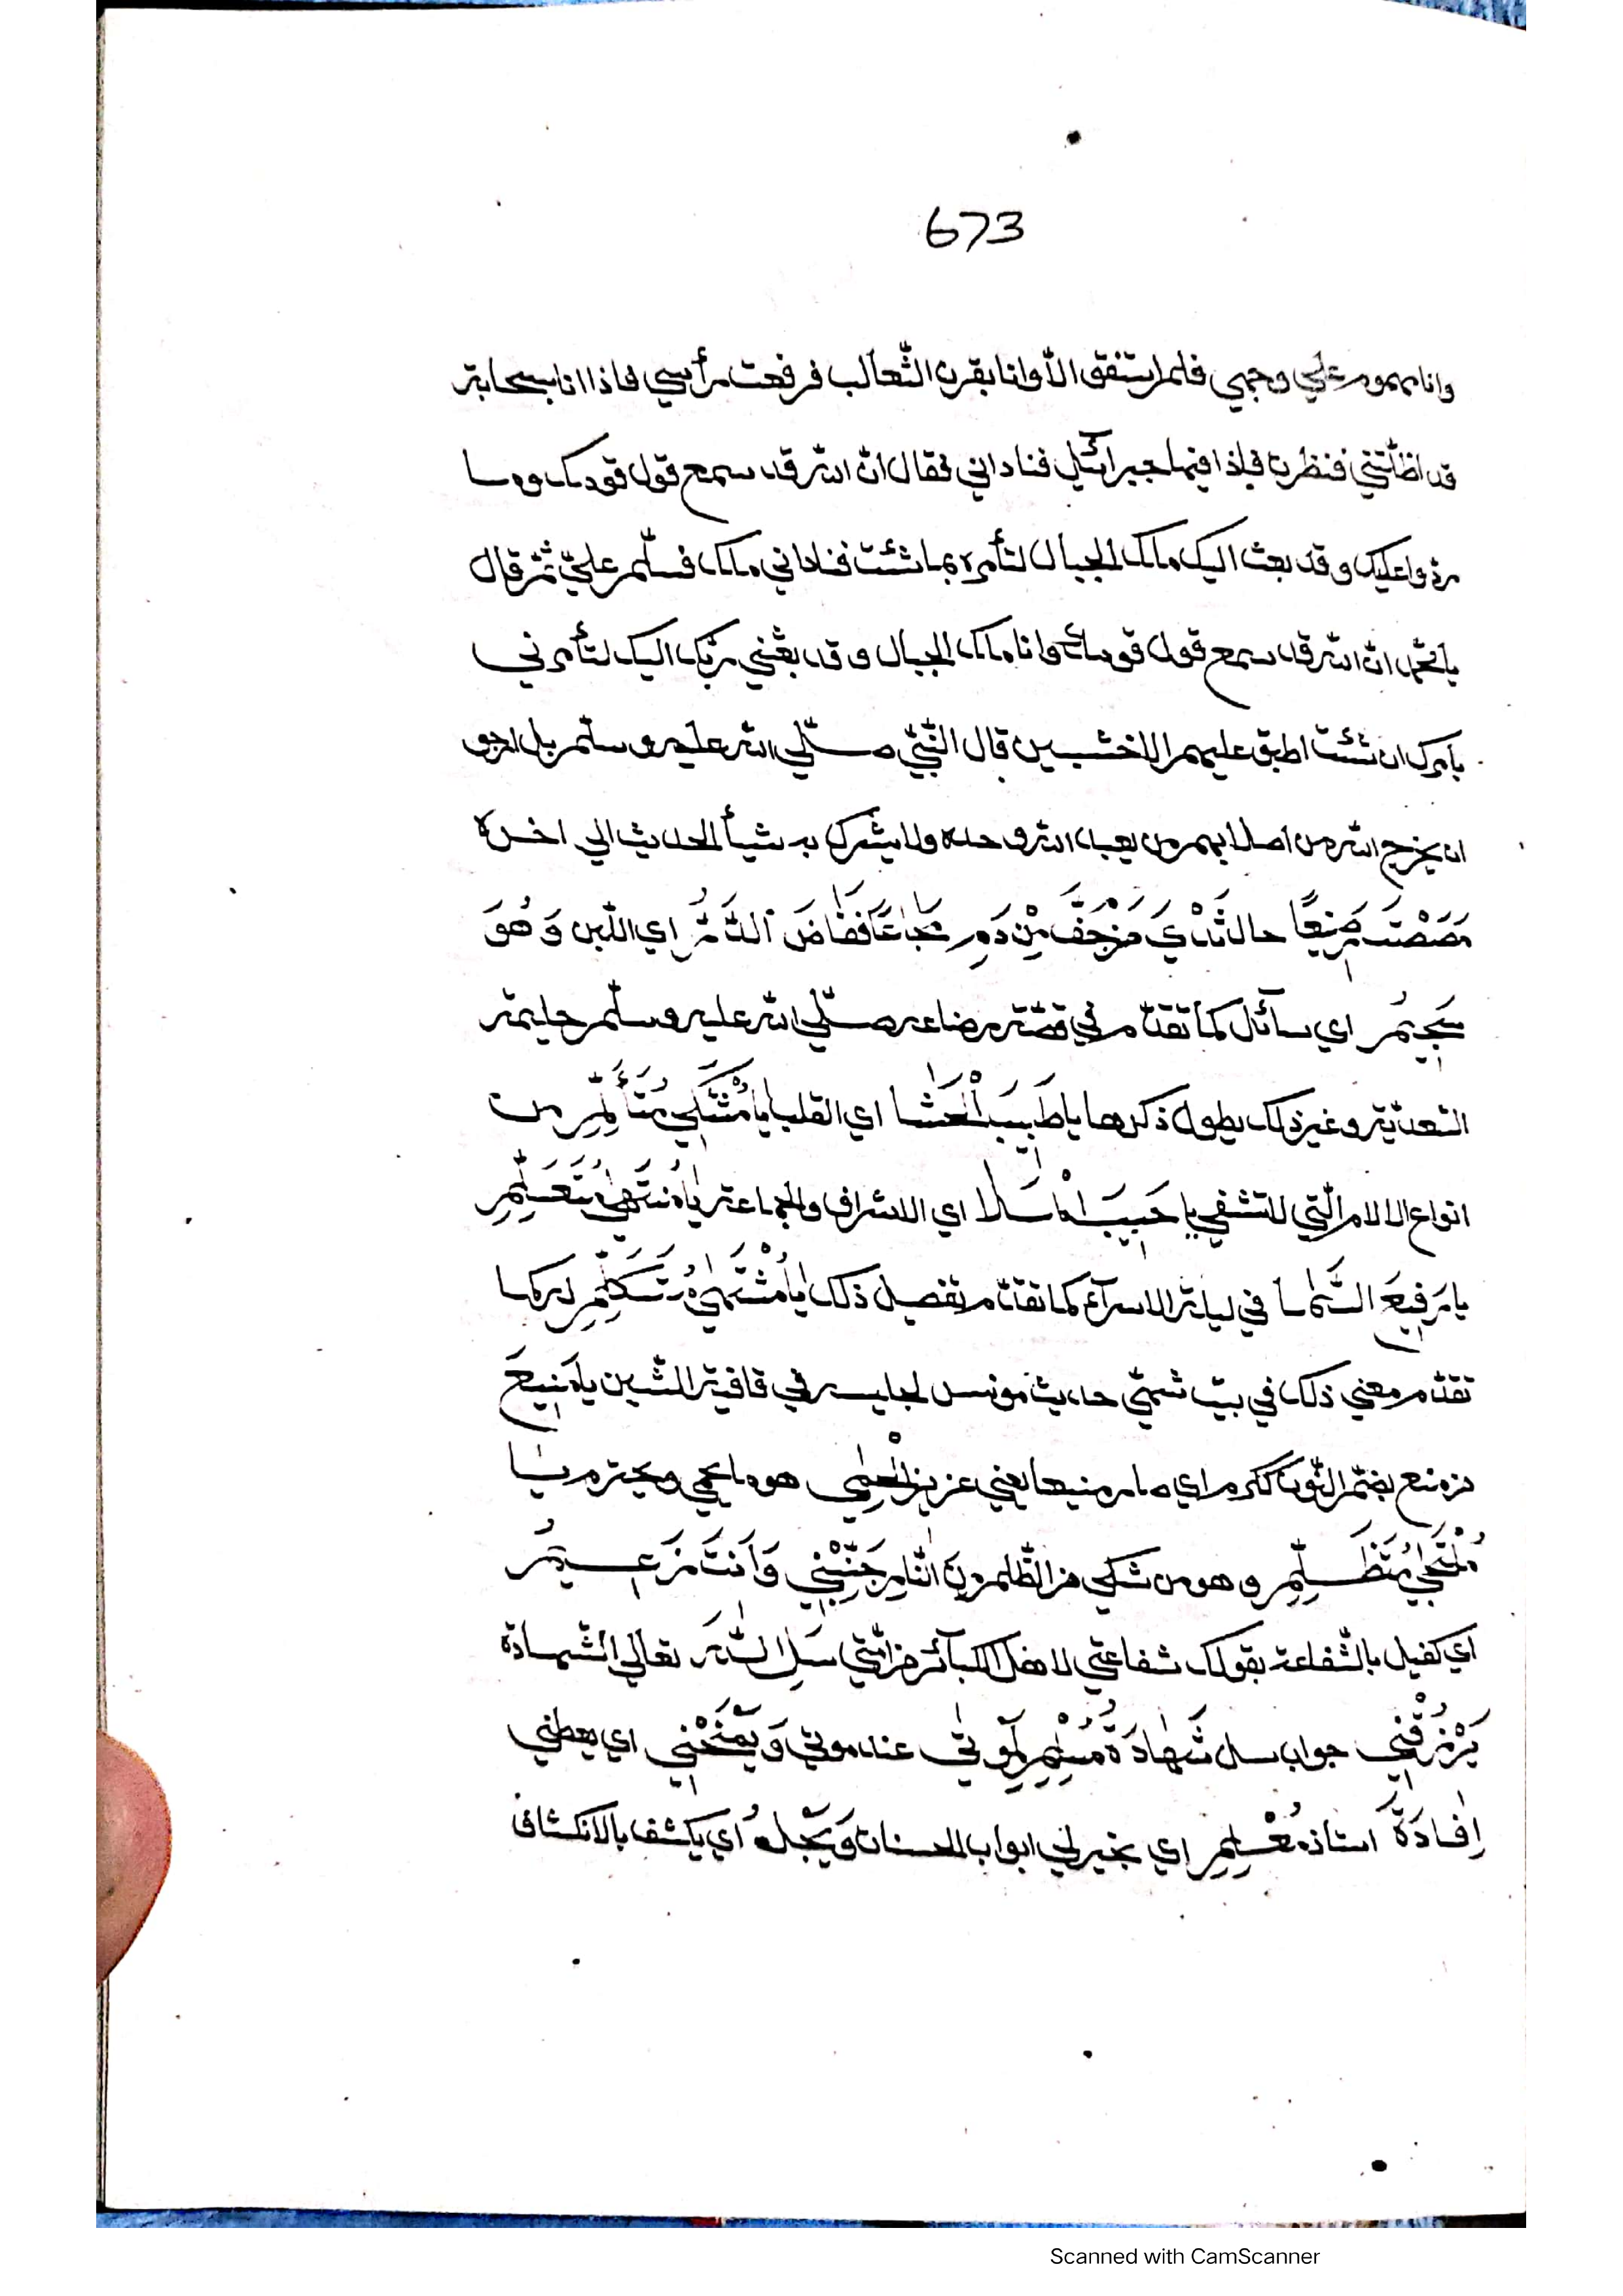 673
وانا مهموم علي وجهي فلم استفق الّا وانا بقرن الثّعالب فرفعت رأسي فاذا انا بسحابة
قد اظلّتني فنظرت فإذا فيها جبرآئيل فناداني فقال انّ اللّه قد سمع قول قومك وما
ردّوا عليك وقد بعث اليك ملك الجبال لتأمره بما شئت فناداني ملك فسلّم عليّ ثمّ قال
يا محمّد انّ اللّه قد سمع قول قومك وانا ملك الجبال وقد بعثني ربّك اليك لتأمرني
بأمرك ان شئت اطبق عليهم الاخشبين قال النّبيّ صلّي اللّه عليه وسلّم بل ارجو
ان يخرج اللّه من اصلابهم من يعبد اللّه وحده ولا يشرك به شيأ الحديث الي اخره
مَصَصْتَ رَضِيعًا حال ثَدْيَ مَنْ جَفَّ مِنْ دَمٍ فَفَاضَ الدَّرُّ اي اللّبن وَهُوَ
سَجِيمُ اي سآئل كما تقدّم في قصّة رضاعه صلّي اللّه عليه وسلّم حليمة
السّعديّة وغير ذلك يطول ذكرها يا طَبِيبَ الْحَشَا اي القلب يا مُشْتَكَي مُتَأَلِّمِ من
انواع الالام الّتي لا تشفي يا حَبِيبَ الْمَلَا اي الاشراف والجماعة يا مُنْتَهَي مُتَعَلِّمِ
يا رَفِيعَ السَّمَا في ليلة الاسرآء كما تقدّم تفصيل ذلك يا مُشْتَهَي مُتَكَلِّمِ له كما
تقدّم معني ذلك في بيت شهيّ حديث مونس لجليسه في قافية السّين يا مَنِيعَ
من منع بضمّ النّون ككرم اي صار منيعا يعني عزيز الْحِمَي هو ما يحمي ويحترم يا
مُلْتَجَي مُتَظَلِّمِ وهو من شكي من الظّلم ونَ النَّارِ جَنِّبْنِي وَاَنْتَ زَعِيمُ
اي كفيل بالشّفاعة بقولك شفاعتي لاهل الكبآئر من امّتي سَلِ اللّٰهَ تعالي الشّهادة
يَرْزُقْنِي جواب سل شَهَادَةَ مُسْلِمِ لِمَوْتِي عند موتي وَيَمْنَحْنِي اي يعطني
اِفَادَةَ استاذ مُعْلِمِ اي يخبرني ابواب الحسنات اي يكشف بالانكشاف
Scanned with CamScanner